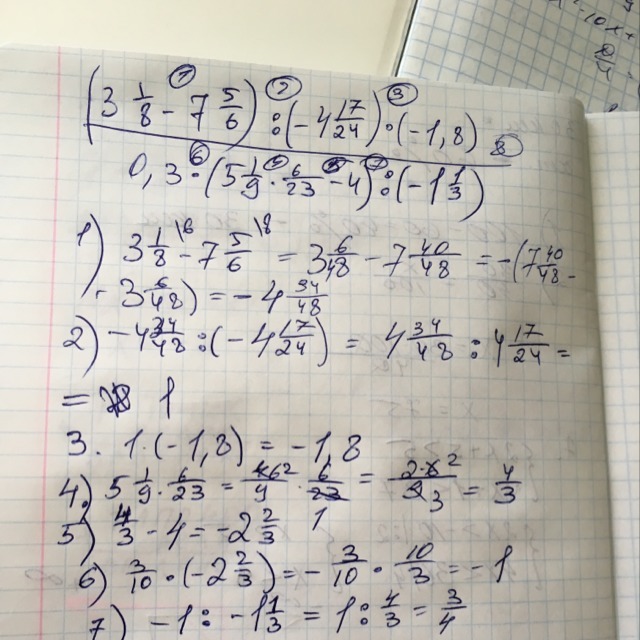 (3 1/8 - 7 5/6) : (-4 17/24) · (-1,8)
0,3 · (5 1/9 · 6/23 - 4) : (-1 1/3)
1) 3 1/8 \6 - 7 5/6 \8 = 3 6/48 - 7 40/48 = -(7 40/48 -
- 3 6/48) = -4 34/48
2) -4 34/48 : (-4 17/24) = 4 34/48 : 4 17/24 =
= 1
3. 1·(-1,8) = -1,8
4) 5 1/9 · 6/23 = 46 2/9 · 6/23 = 2·6 2/9 3 = 4/3
5) 4/3 - 4 = -2 2/3 1
6) 3/10 · (-2 2/3) = - 3/10 · 10/3 = -1
7) -1 : -1 1/3 = 1 : 4/3 = 3/4